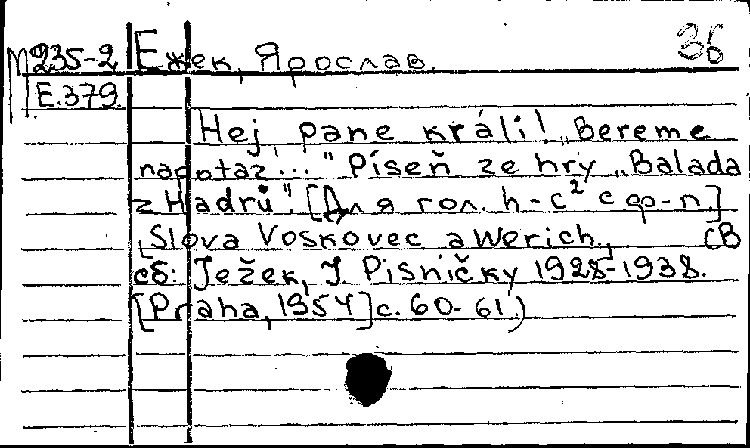 36
М235-2 Ежек, Ярослав.
Е.379.
Hej, pane králi! „Bereme
napotaz..." Píseň ze hry „Balada
z Hadrů". [Для гол. h-c² с фр-п.]
(Slova Voskovec a Werich.,
сб: Ježek, J. Pisničky 1928-1938.
[Praha, 1954] с. 60-61.)